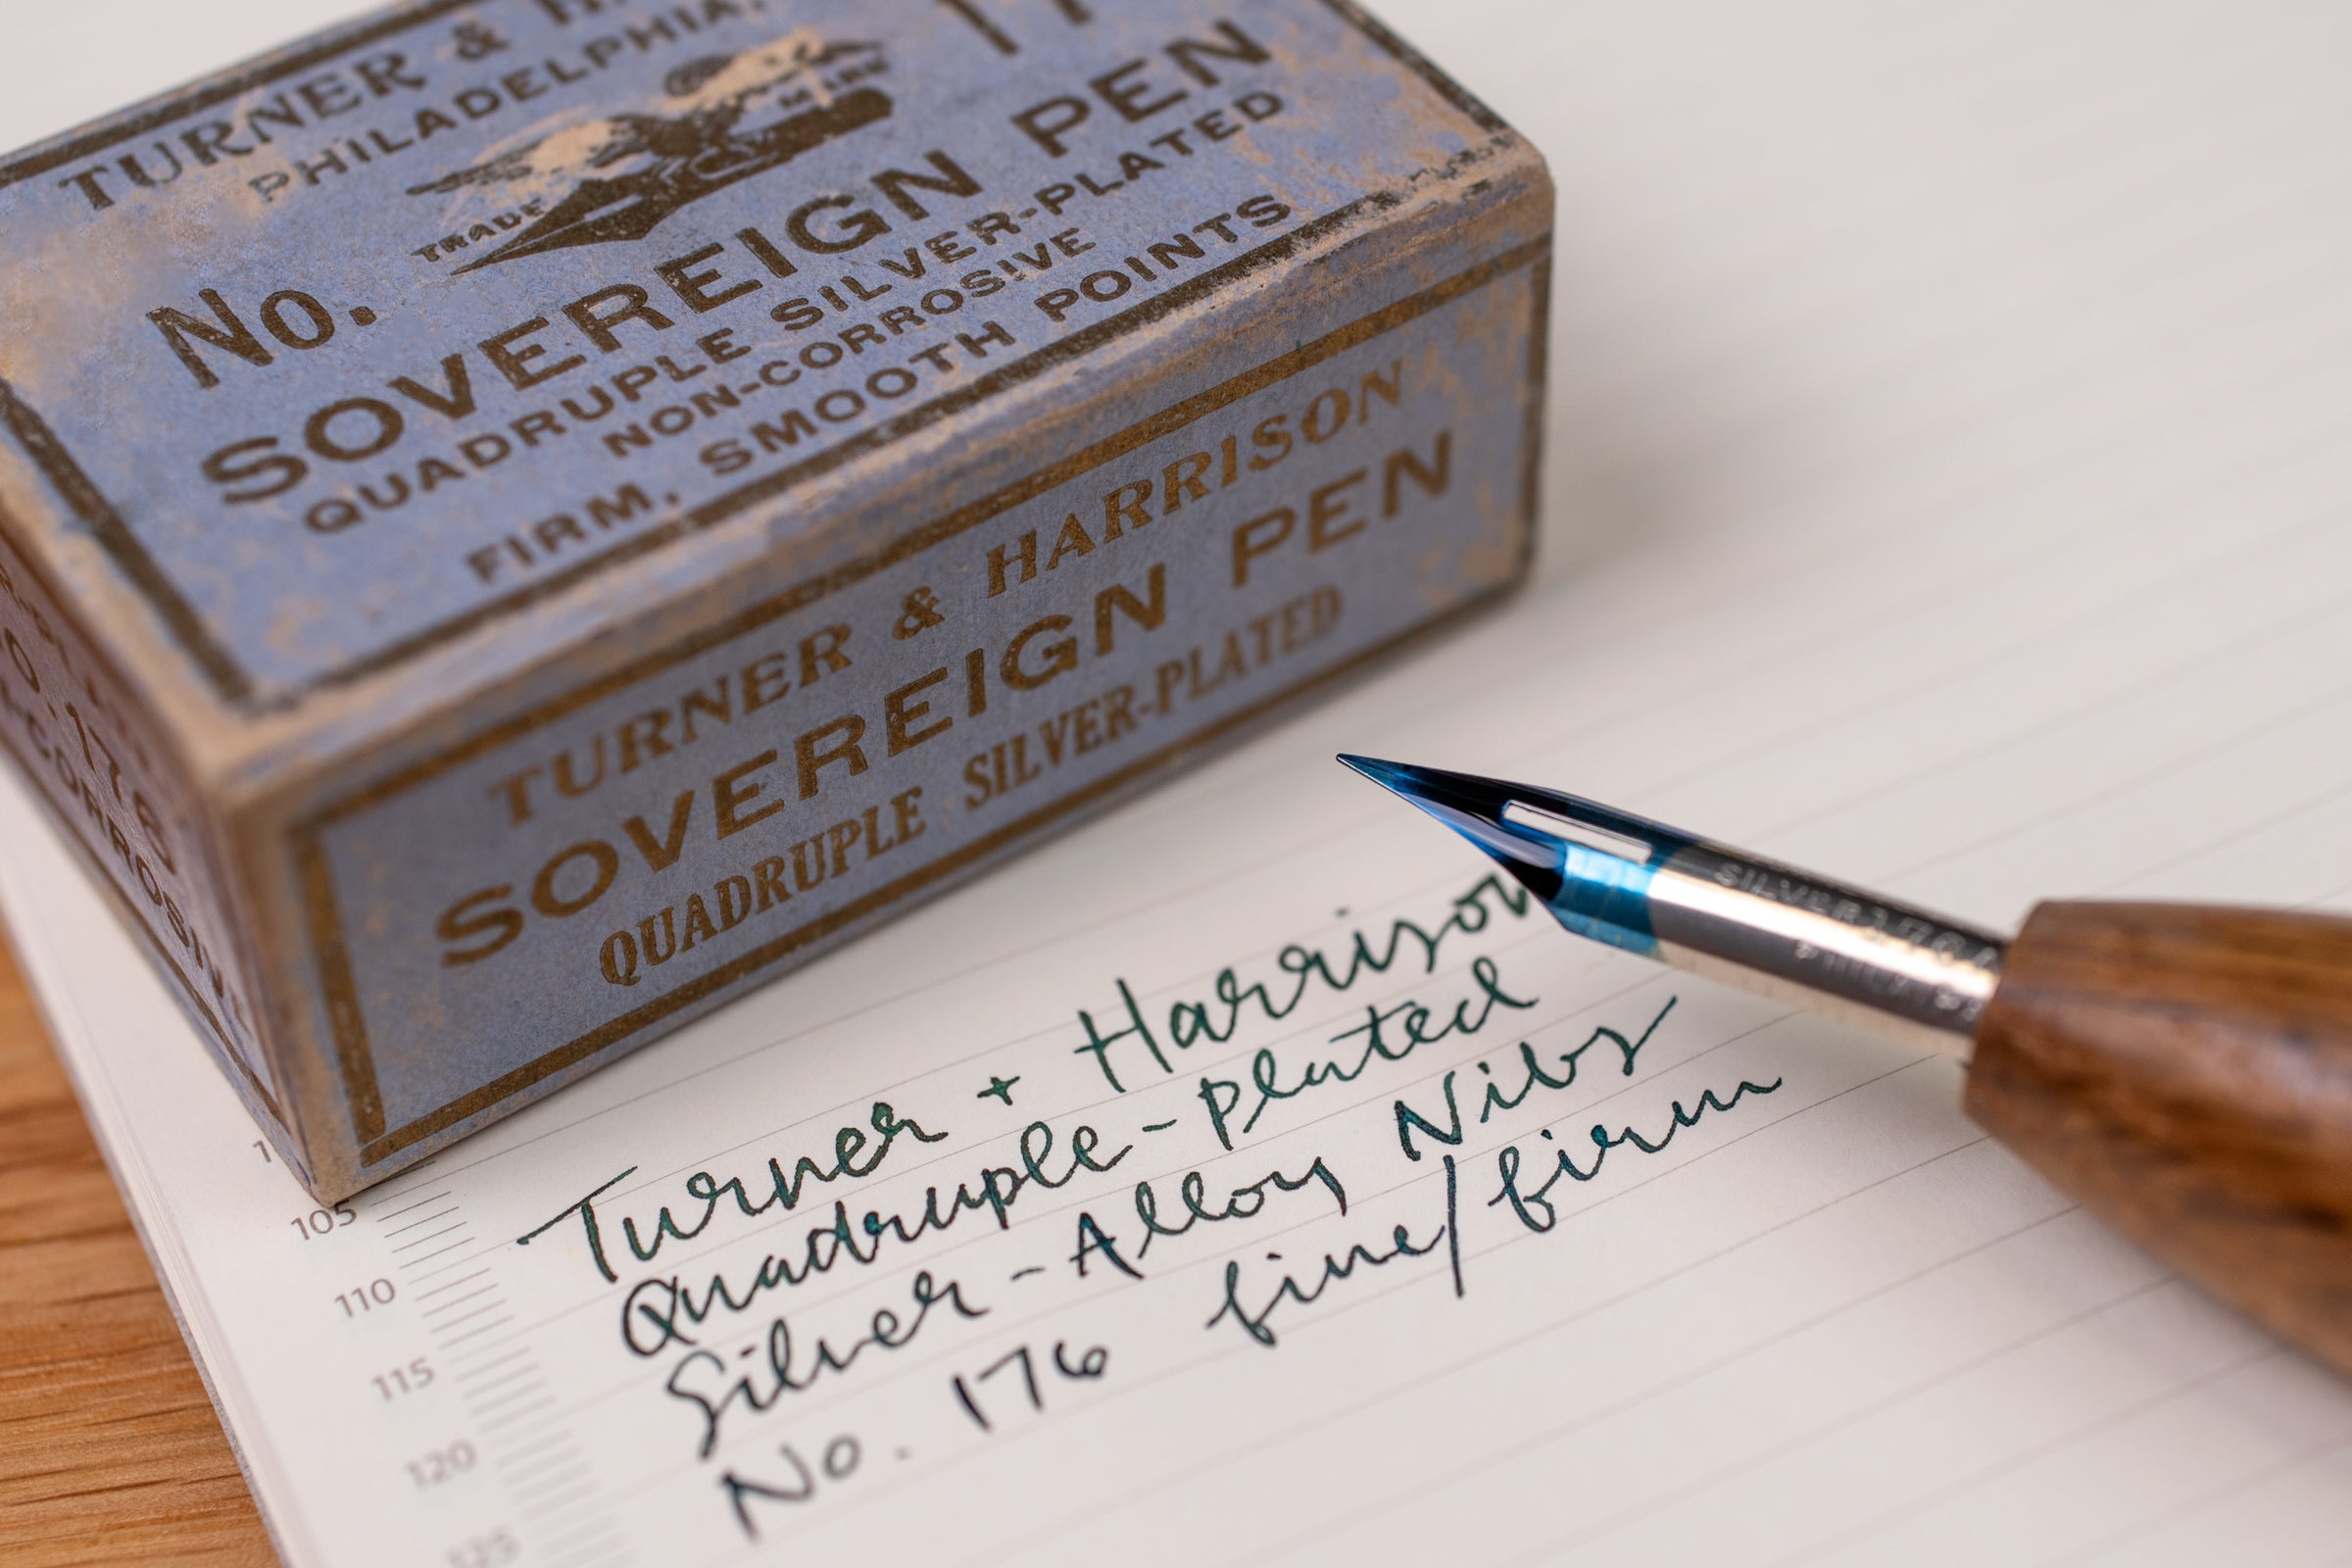 TURNER &
PHILADELPHIA,
TRADE MARK
No. 17
SOVEREIGN PEN
QUADRUPLE SILVER-PLATED
NON-CORROSIVE
FIRM, SMOOTH POINTS
TURNER & HARRISON
SOVEREIGN PEN
QUADRUPLE SILVER-PLATED
NO. 176
Turner + Harrison
Quadruple-plated
Silver-Alloy Nibs
No. 176 fine/firm
105
110
115
120
125